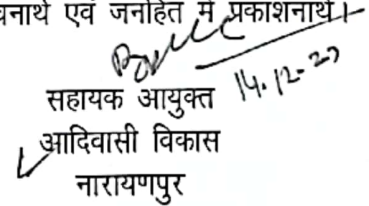 वनार्थ एवं जनहित में प्रकाशनार्थ।
14.12.23
सहायक आयुक्त
आदिवासी विकास
नारायणपुर